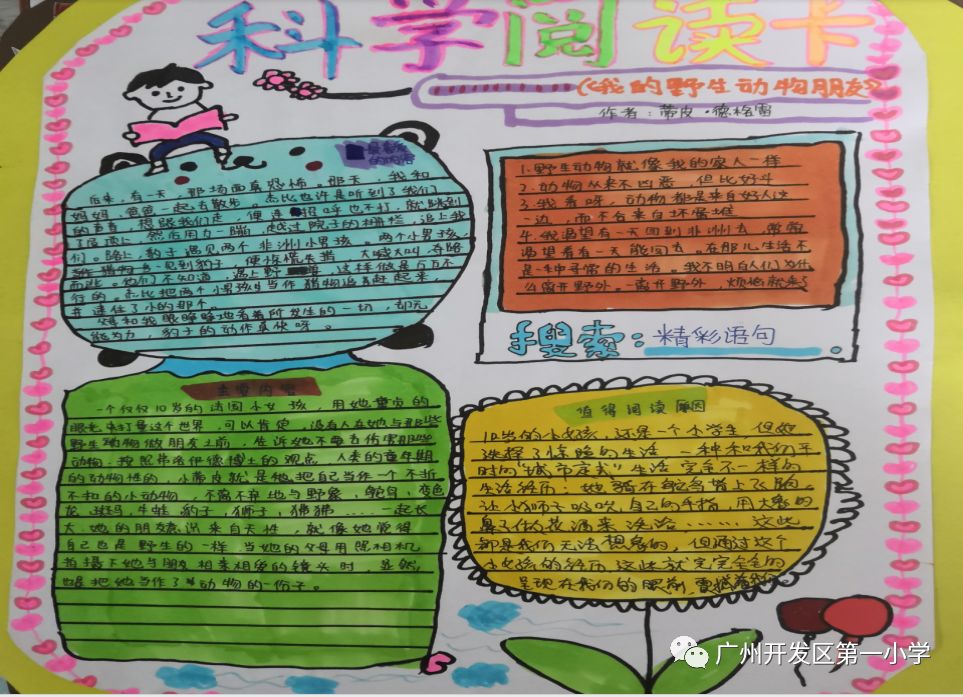 科学阅读卡
《我的野生动物朋友》
作者：蒂皮·德格雷
最喜欢
的内容
后来，有一天，那场面真恐怖。那天，我和
妈妈，爸爸一起去散步。杰比也许是听到了我们
的声音，想跟我们走，便连招呼也不打，就跳到
了屋顶上，然后用力一蹦，越过院子的栅栏，追上我
们。路上，豹子遇见两个非洲小男孩。两个小男孩
一见到豹子，便惊慌失措，大喊大叫，夺路
而逃。他们不知道，遇上野，这样做是万万不
行的。杰比把两个小男孩当作猎物追赶起来，
并逮住了小的那个。
爸和我眼睁睁地看着所发生的一切，却无
能为力，豹子的动作真快呀。
1.野生动物就像我的家人一样
2.动物从来不凶恶，但比好斗
3.我看呀，动物都是来自好人这
一边，而不会来自坏蛋堆
4.我渴望有一天回到非洲去，常常
渴望着有一天能回去。在那儿生活不
是一种寻常的生活。我不明白人们为什
么离开野外。一离开野外，烦恼就来了
搜索：精彩语句
主要内容
一个仅仅10岁的法国小女孩，用她童贞的
眼光来打量这个世界，可以肯定，没有人在她与那些
野生动物做朋友之前，告诉她不要去伤害那些
动物。按照弗洛伊德博士的观点，人类的童年期
的动物性的，小蒂皮就是他，把自己当作一个不折
不扣的小动物，不离不弃地与野象，鸵鸟，变色
龙，斑玛，牛蛙，豹子，狮子，狒狒……一起长
大。她的朋友意说来自天性，就像她觉得
自己也是野生的一样，当她的父母用照相机
拍摄下她与朋友相亲相爱的镜头时，显然
也是把她当作了动物的一份子。
值得阅读原因
10岁的小女孩，还是一个小学生，但她
选择了惊险的生活，一种和我们平
时间“城市庄式”生活完全不一样的
生活经历：她骑在鸵鸟背上飞驰，
让小狮子吸吮自己的手指，用大象的
鼻子做花洒来沐浴………这些
都是我们无法想象的，但通过这个
小女孩的经历，这些就完完全全的
呈现在我们的眼前，
广州开发区第一小学